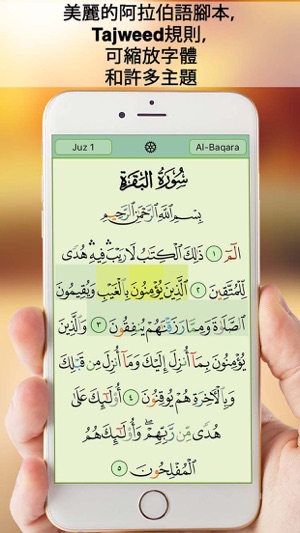 美麗的阿拉伯語腳本,
Tajweed規則,
可縮放字體
和許多主題
Juz 1
Al-Baqara
سُورَةُ الْبَقَرَةِ
بِسْمِ اللَّهِ الرَّحْمَٰنِ الرَّحِيمِ
الٓمٓ ۝١ ذَٰلِكَ الْكِتَٰبُ لَا رَيْبَ ۛ فِيهِ ۛ هُدًى
لِّلْمُتَّقِينَ ۝٢ الَّذِينَ يُؤْمِنُونَ بِالْغَيْبِ وَيُقِيمُونَ
الصَّلَوٰةَ وَمِمَّا رَزَقْنَٰهُمْ يُنفِقُونَ ۝٣ وَالَّذِينَ
يُؤْمِنُونَ بِمَآ أُنزِلَ إِلَيْكَ وَمَآ أُنزِلَ مِن قَبْلِكَ
وَبِالْءَاخِرَةِ هُمْ يُوقِنُونَ ۝٤ أُو۟لَٰٓئِكَ عَلَىٰ
هُدًى مِّن رَّبِّهِمْ ۖ وَأُو۟لَٰٓئِكَ هُمُ
الْمُفْلِحُونَ ۝٥